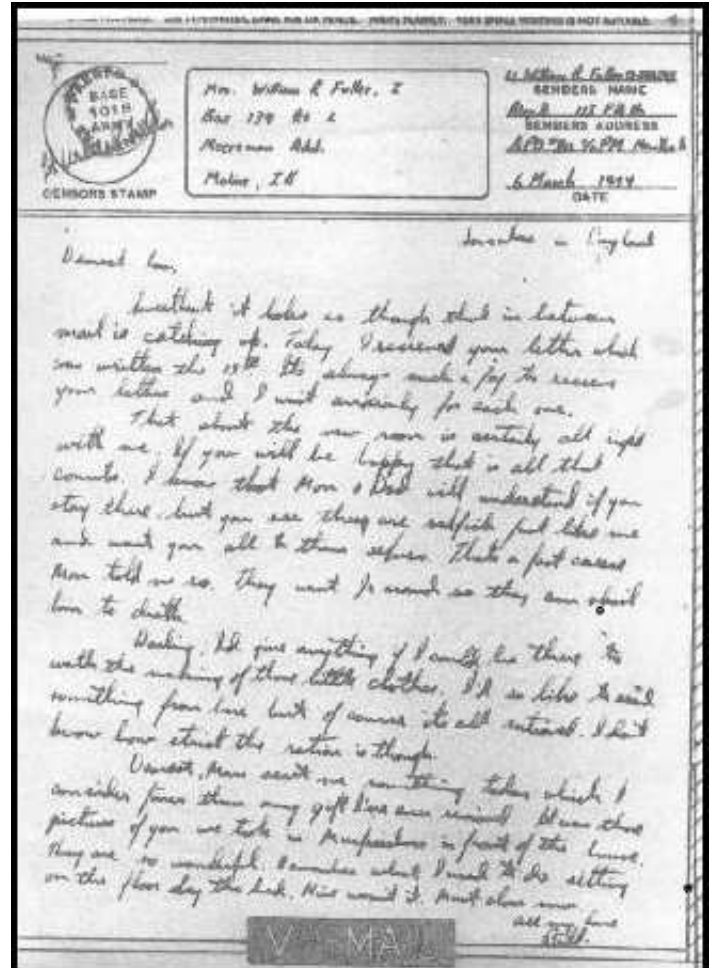 BASE
ARMY
CENSORS STAMP
Mrs. William R Fuller, I
Box 139 Rt 2
Add.
Moline, Ill
SENDERS NAME
SENDERS ADDRESS
6 March 1944
DATE
in England
Dearest
it looks as though that in between
mail is catching up. Today I received your letter which
was written the 19th Its always such a joy to receive
your letters and I wait anxiously for each one.
That about the new room is certainly all right
with me. If you will be happy that is all that
counts. I know that Mom & Dad will understand if you
stay there, but you see they are selfish just like me
and want you all to them selves. Thats a fact cause
Mom told me so. They want around so they can spoil
him to death.
Darling, I'd give anything if I could be there to
watch the making of those little clothes. I'd so like to send
something from here but of course its all rationed. I don't
know how strict the ration is though.
Dearest, Mom sent me something today which I
consider finer than any gift I've ever received. It was those
pictures of you we took in in front of the house.
They are so wonderful. Remember what I used to do sitting
on the floor by the bed. Must close now
all my love
Bill.
V-MAIL